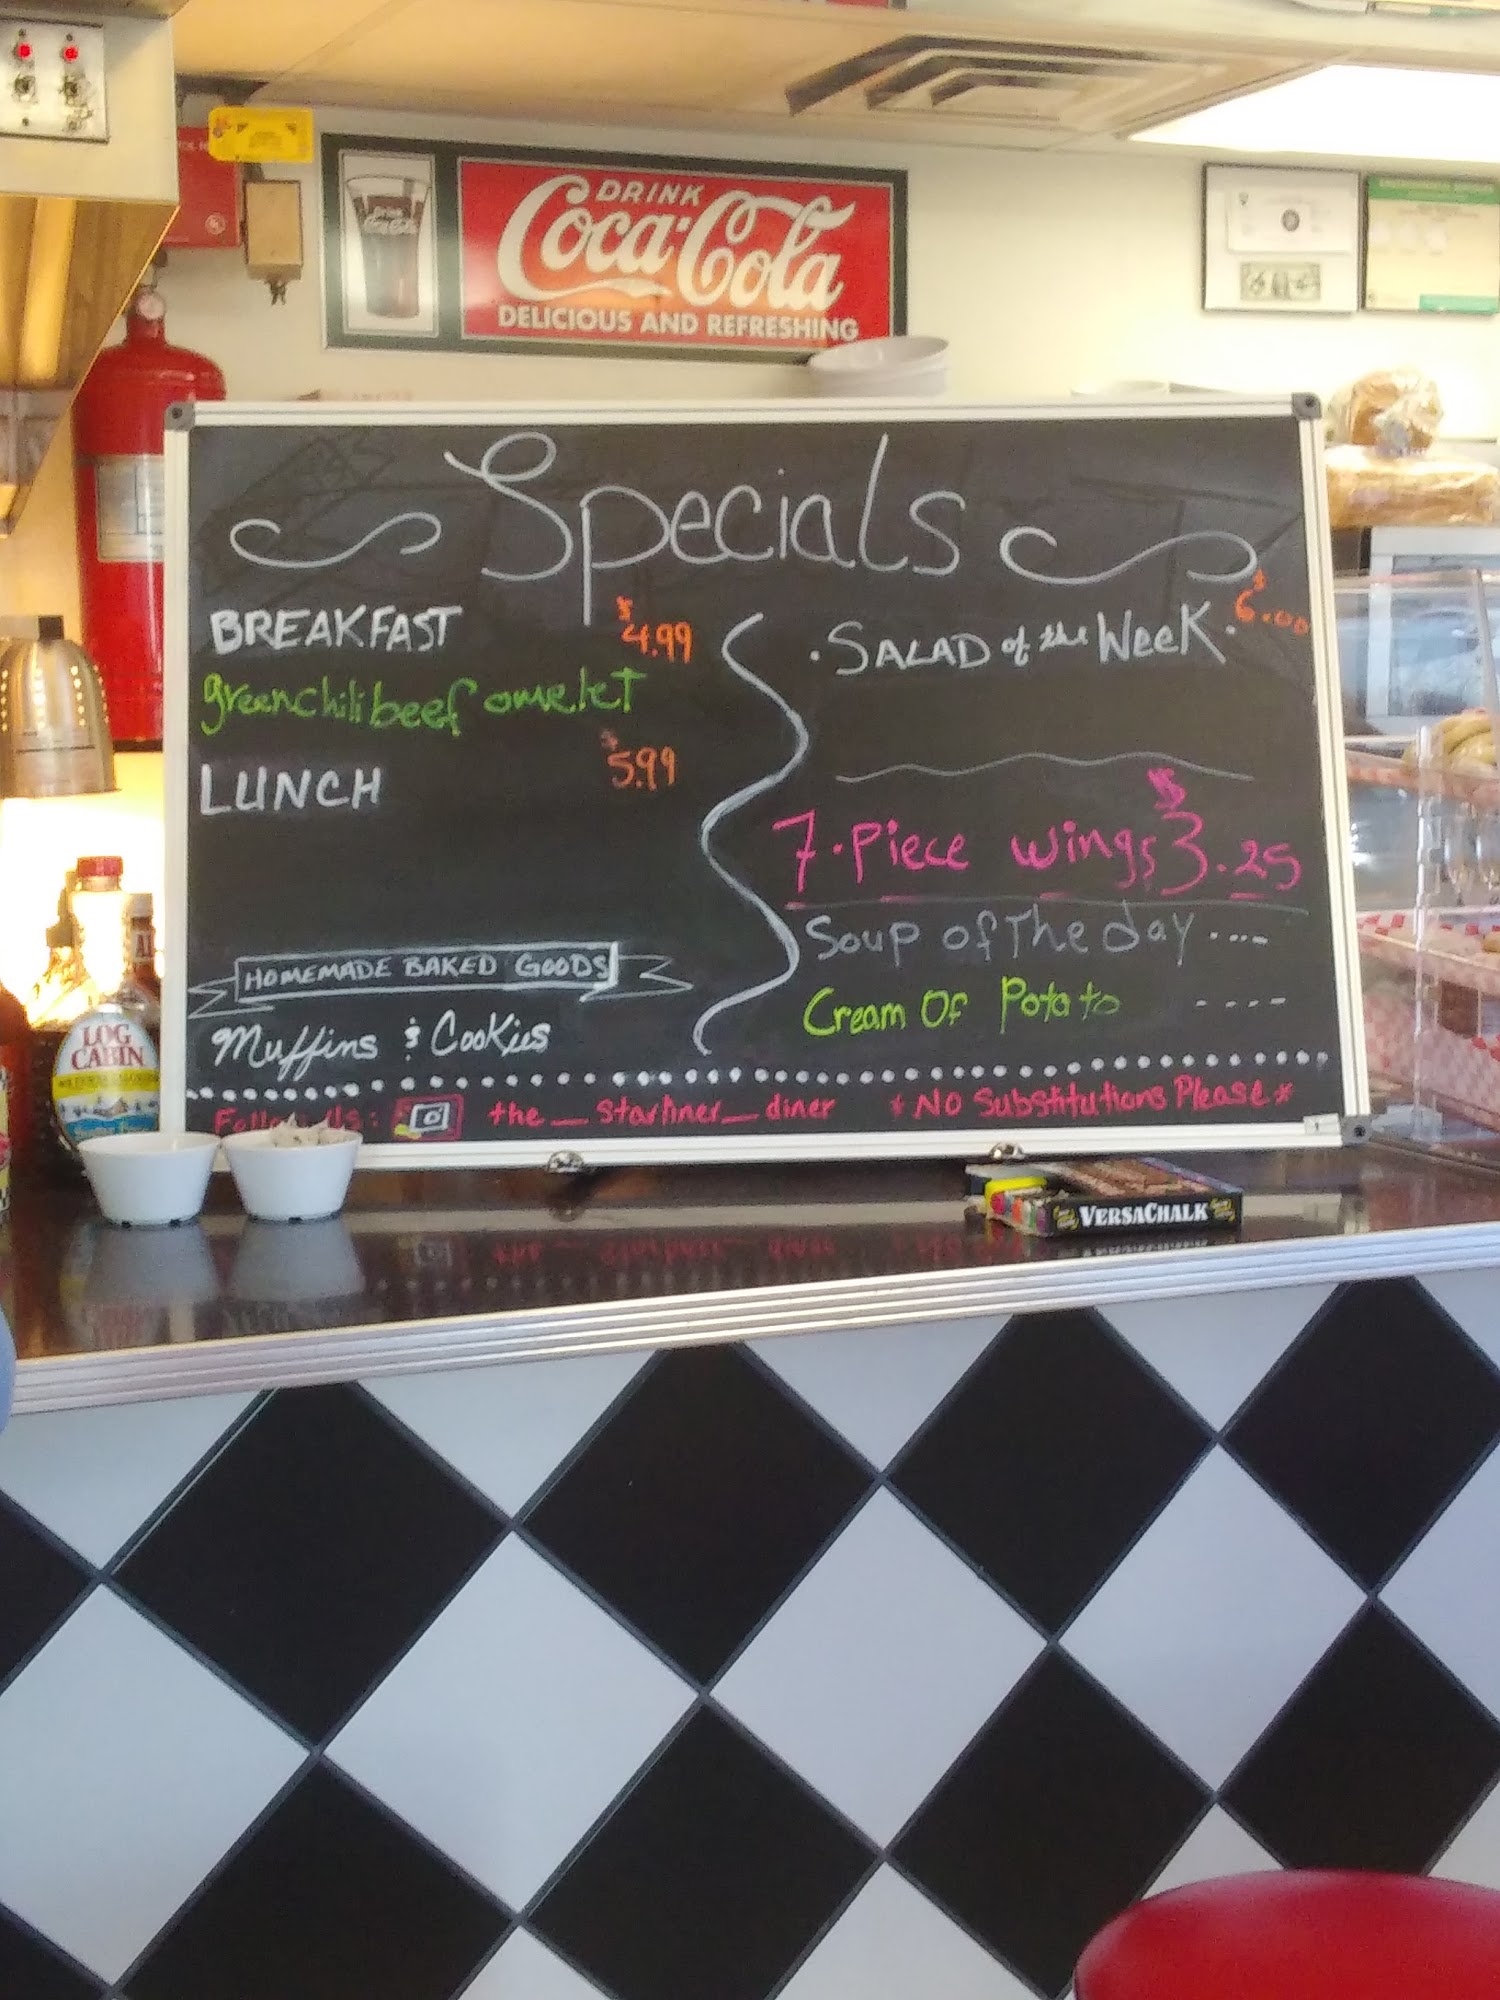 DRINK
Coca-Cola
DELICIOUS AND REFRESHING
Specials
BREAKFAST $4.99
greenchili beef omelet
LUNCH $5.99
HOMEMADE BAKED GOODS
Muffins & Cookies
. SALAD of the Week . $6.00
7. Piece wings $3.25
Soup of The day ....
Cream Of Potato ----
Follow Us: the_starliner_diner *No Substitutions Please*
LOG
CABIN
VERSACHALK